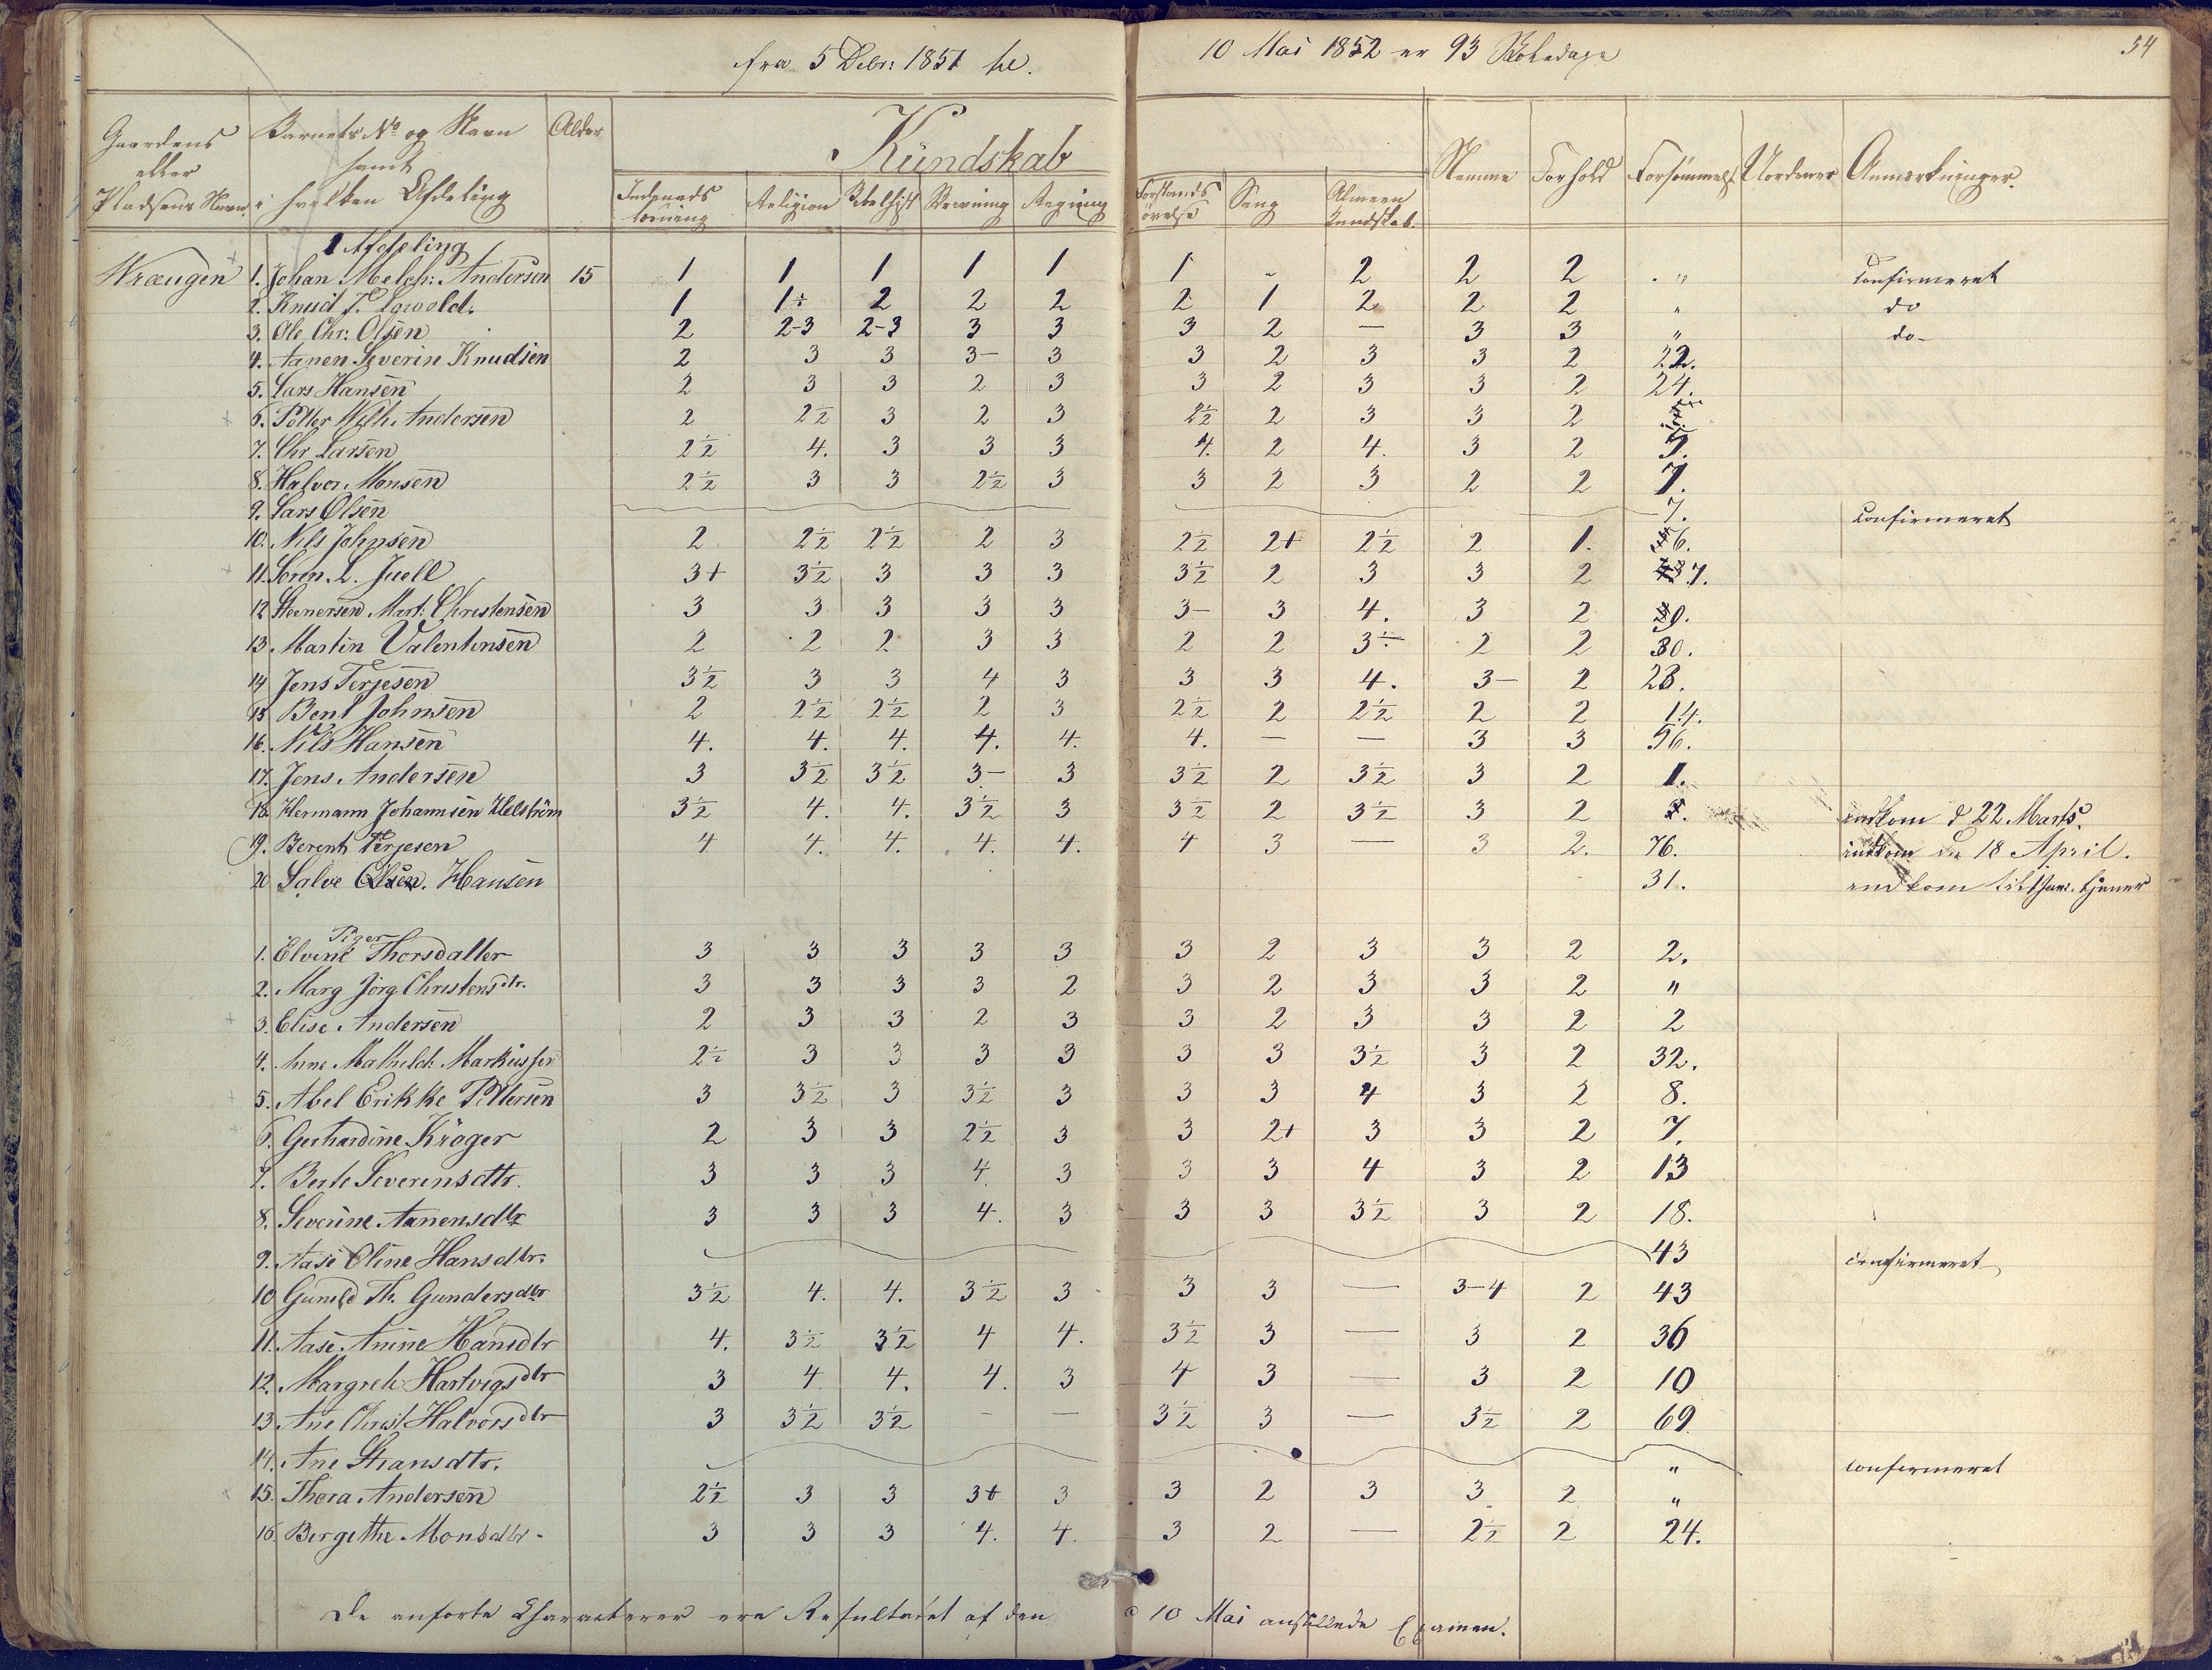 fra 5 Debr: 1851 til 10 Mai 1852 er 93 Skoledage
54
Gaardens eller Pladsens Navn
Barnets No og Navn samt i hvilken Afdeling
Alder
Kundskab
Religion Bibelhist Skrivning Regning Forstands øvelse Sang Almeen Kundskab.
Nemme Forhold Forsømmels Uordener Anmærkninger.
1 Afdeling
1. Johan Melch: Andersen 15 1 1 1 1 1 1 " 2 2 2 " Confirmeret
2. Knud T. 1 1÷ 2 2 2 2 1 2 2 2 " do
3. Ole Chr: Olsen 2 2-3 2-3 3 3 3 2 — 3 3 " do-
4. Aanen Severin Knudsen 2 3 3 3- 3 3 2 3 3 2 22.
5. Lars Hansen 2 3 3 2 3 3 2 3 3 2 24.
6. Petter Wilh. Andersen 2 2½ 3 2 3 2½ 2 3 3 2
7. Chr Larsen 2½ 4. 3 3 3 4. 2 4. 3 2 5.
8. Halvor Monsen 2½ 3 3 2½ 3 3 2 3 2 2 7.
9. Lars Olsen 7. Confirmeret
10. Nils Johnsen 2 2½ 2½ 2 3 2½ 2+ 2½ 2 1. 6.
11. Søren. L. Juell 3+ 3½ 3 3 3 3½ 2 3 3 2 37.
12 Steenersen Mart: Christensen 3 3 3 3 3 3- 3 4. 3 2 9.
13. Martin Valentinsen 2 2 2 3 3 2 2 3÷ 2 2 30.
14 Jens Terjesen 3½ 3 3 4 3 3 3 4. 3- 2 28.
15 Bent Johnsen 2 2½ 2½ 2 3 2½ 2 2½ 2 2 14.
16. Nils Hansen 4. 4. 4. 4. 4. 4. — — 3 3 56.
17. Jens Andersen 3 3½ 3½ 3- 3 3½ 2 3½ 3 2 1.
18. Hermann Johannsen Helström 3½ 4. 4. 3½ 3 3½ 2 3½ 3 2 indkom d 22 Marts.
19. Berent Terjesen 4 4. 4. 4. 4. 4 3 — 3 2. 76. indkom den 18 April.
20 Salve Olsen. Hansen 31. indkom
Piger
1. Elvine Thorsdatter 3 3 3 3 3 3 2 3 3 2 2.
2. Marg Jörg Christensdtr. 3 3 3 3 2 3 2 3 3 2 "
3. Elise Andersen 2 3 3 2 3 3 2 3 3 2 2
4. Anne Mathild: Markussen 2½ 3 3 3 3 3 3 3½ 3 2 32.
5. Abel Erikke Pettersen 3 3½ 3 3½ 3 3 3 4 3 2 8.
6. Gerhardine Kröger 2 3 3 2½ 3 3 2+ 3 3 2 7.
7. Berte Severinsdtr. 3 3 3 4. 3 3 3 4 3 2 13
8. Severine Aanensdtr 3 3 3 4. 3 3 3 3½ 3 2 18.
9. Aase Oline Hansdtr: 43 Confirmeret
10 Gunild Th. Gundersdtr 3½ 4. 4. 3½ 3 3 3 — 3-4 2 43
11. Aase Anine Hansdtr 4. 3½ 3½ 4 4. 3½ 3 — 3 2 36
12. Margrete Hartvigsdtr 3 4 4. 4. 3 4 3 — 3 2 10
13. Ane Christ. Halvorsdtr 3 3½ 3½ — — 3½ 3 — 3½ 2 69.
14. Ane dtr. " Confirmeret
15. Thora Andersen 2½ 3 3 3+ 3 3 2 3 3 2 "
16. Bergithe Monsdtr. 3 3 3 4. 4. 3 2 — 2½ 2 24.
De anförte Characterer ere Resultatet af den 10 Mai anstillede Examen.